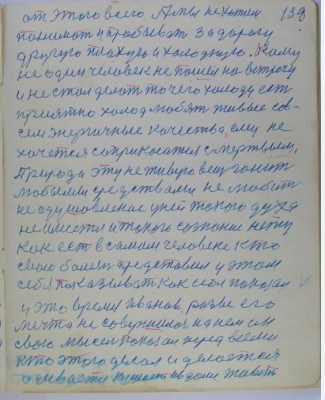 от этого всего. А мы не хотим 139
понимать и пробывать за дорогу
другую плохую и холодную. К кому
не один человек не пошел на встречу
и не стал делать то чего холоду есть
приятно холод любят живые со-
сем энергичные качества, ему не
хочется соприкосатся с мертвым,
Природа эту не живую вещ гонит
любыми средствами не любит
не одушовленое у ней такого духа
не имеется и такого сознание нету
как есть в самом человеке кто
свою болезнь представил у этом
себя показывать как себя показал
у это время Иванов, разве его
мечта не совершилася на нем он
свою мысль показал перед всеми
кто этого делал и делается
людях жить